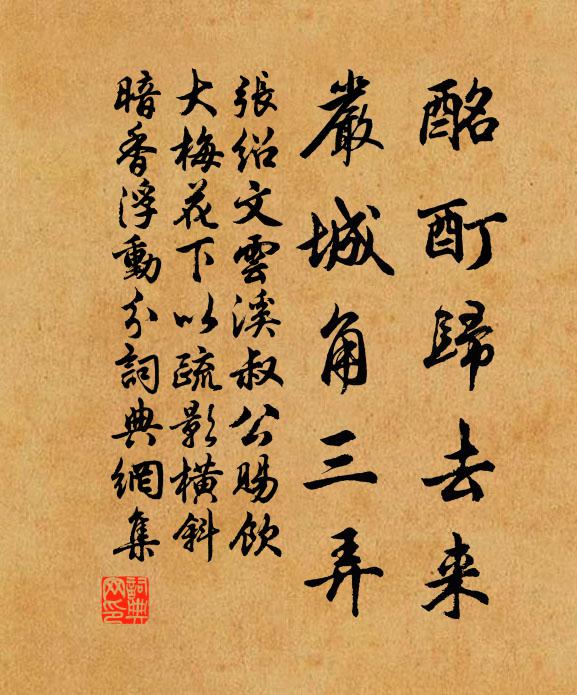 酩酊歸去来
嚴城角三弄
張紹文雲溪叔公賜飲
大梅花下以疏影横斜
暗香浮動分詞典網集
詞典网印